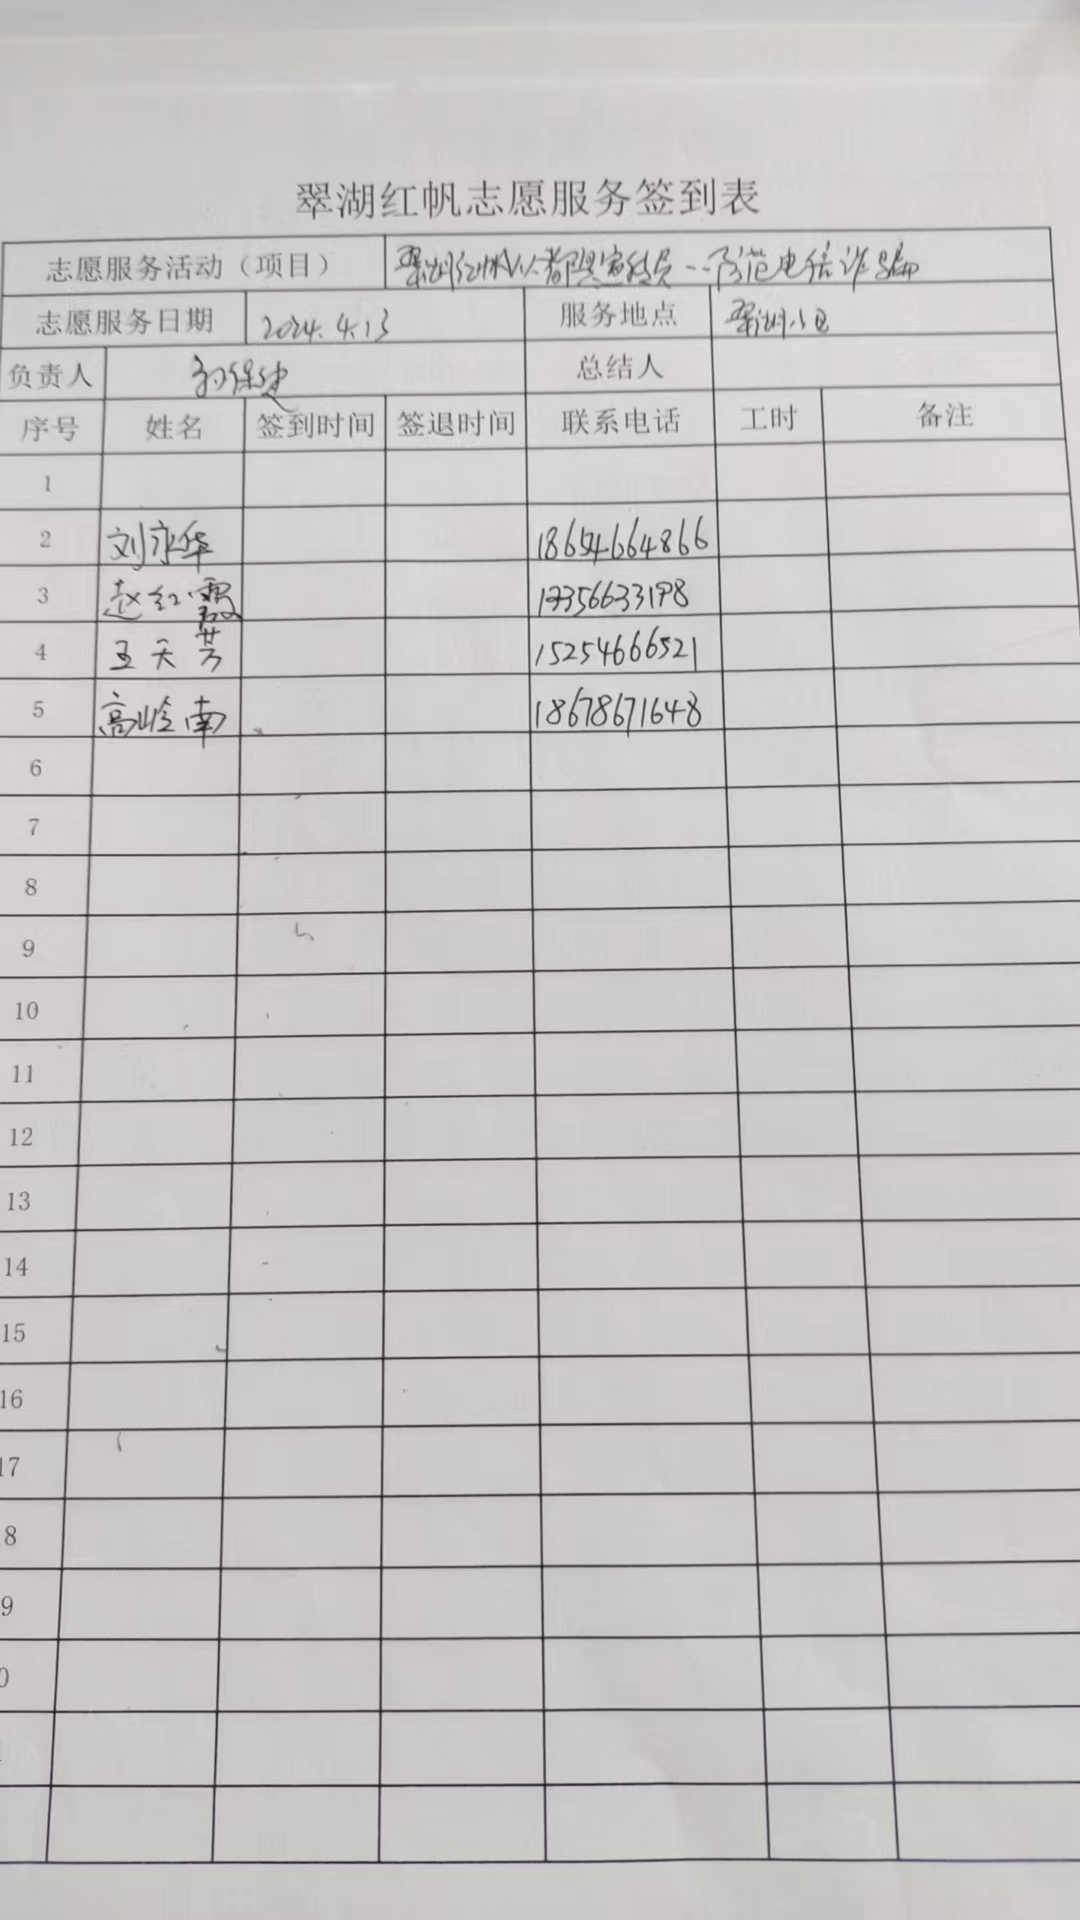 翠湖红帆志愿服务签到表
志愿服务活动（项目） 翠湖红帆人人都是宣传员--防范电信诈骗
志愿服务日期 2024.4.13 服务地点 翠湖小区
负责人 总结人
序号 姓名 签到时间 签退时间 联系电话 工时 备注
1
2 刘永华 18654664866
3 赵红霞
4 王天芳 15254666521
5 高岭南 18678671648
6
7
8
9
10
11
12
13
14
15
16
17
8
9
0